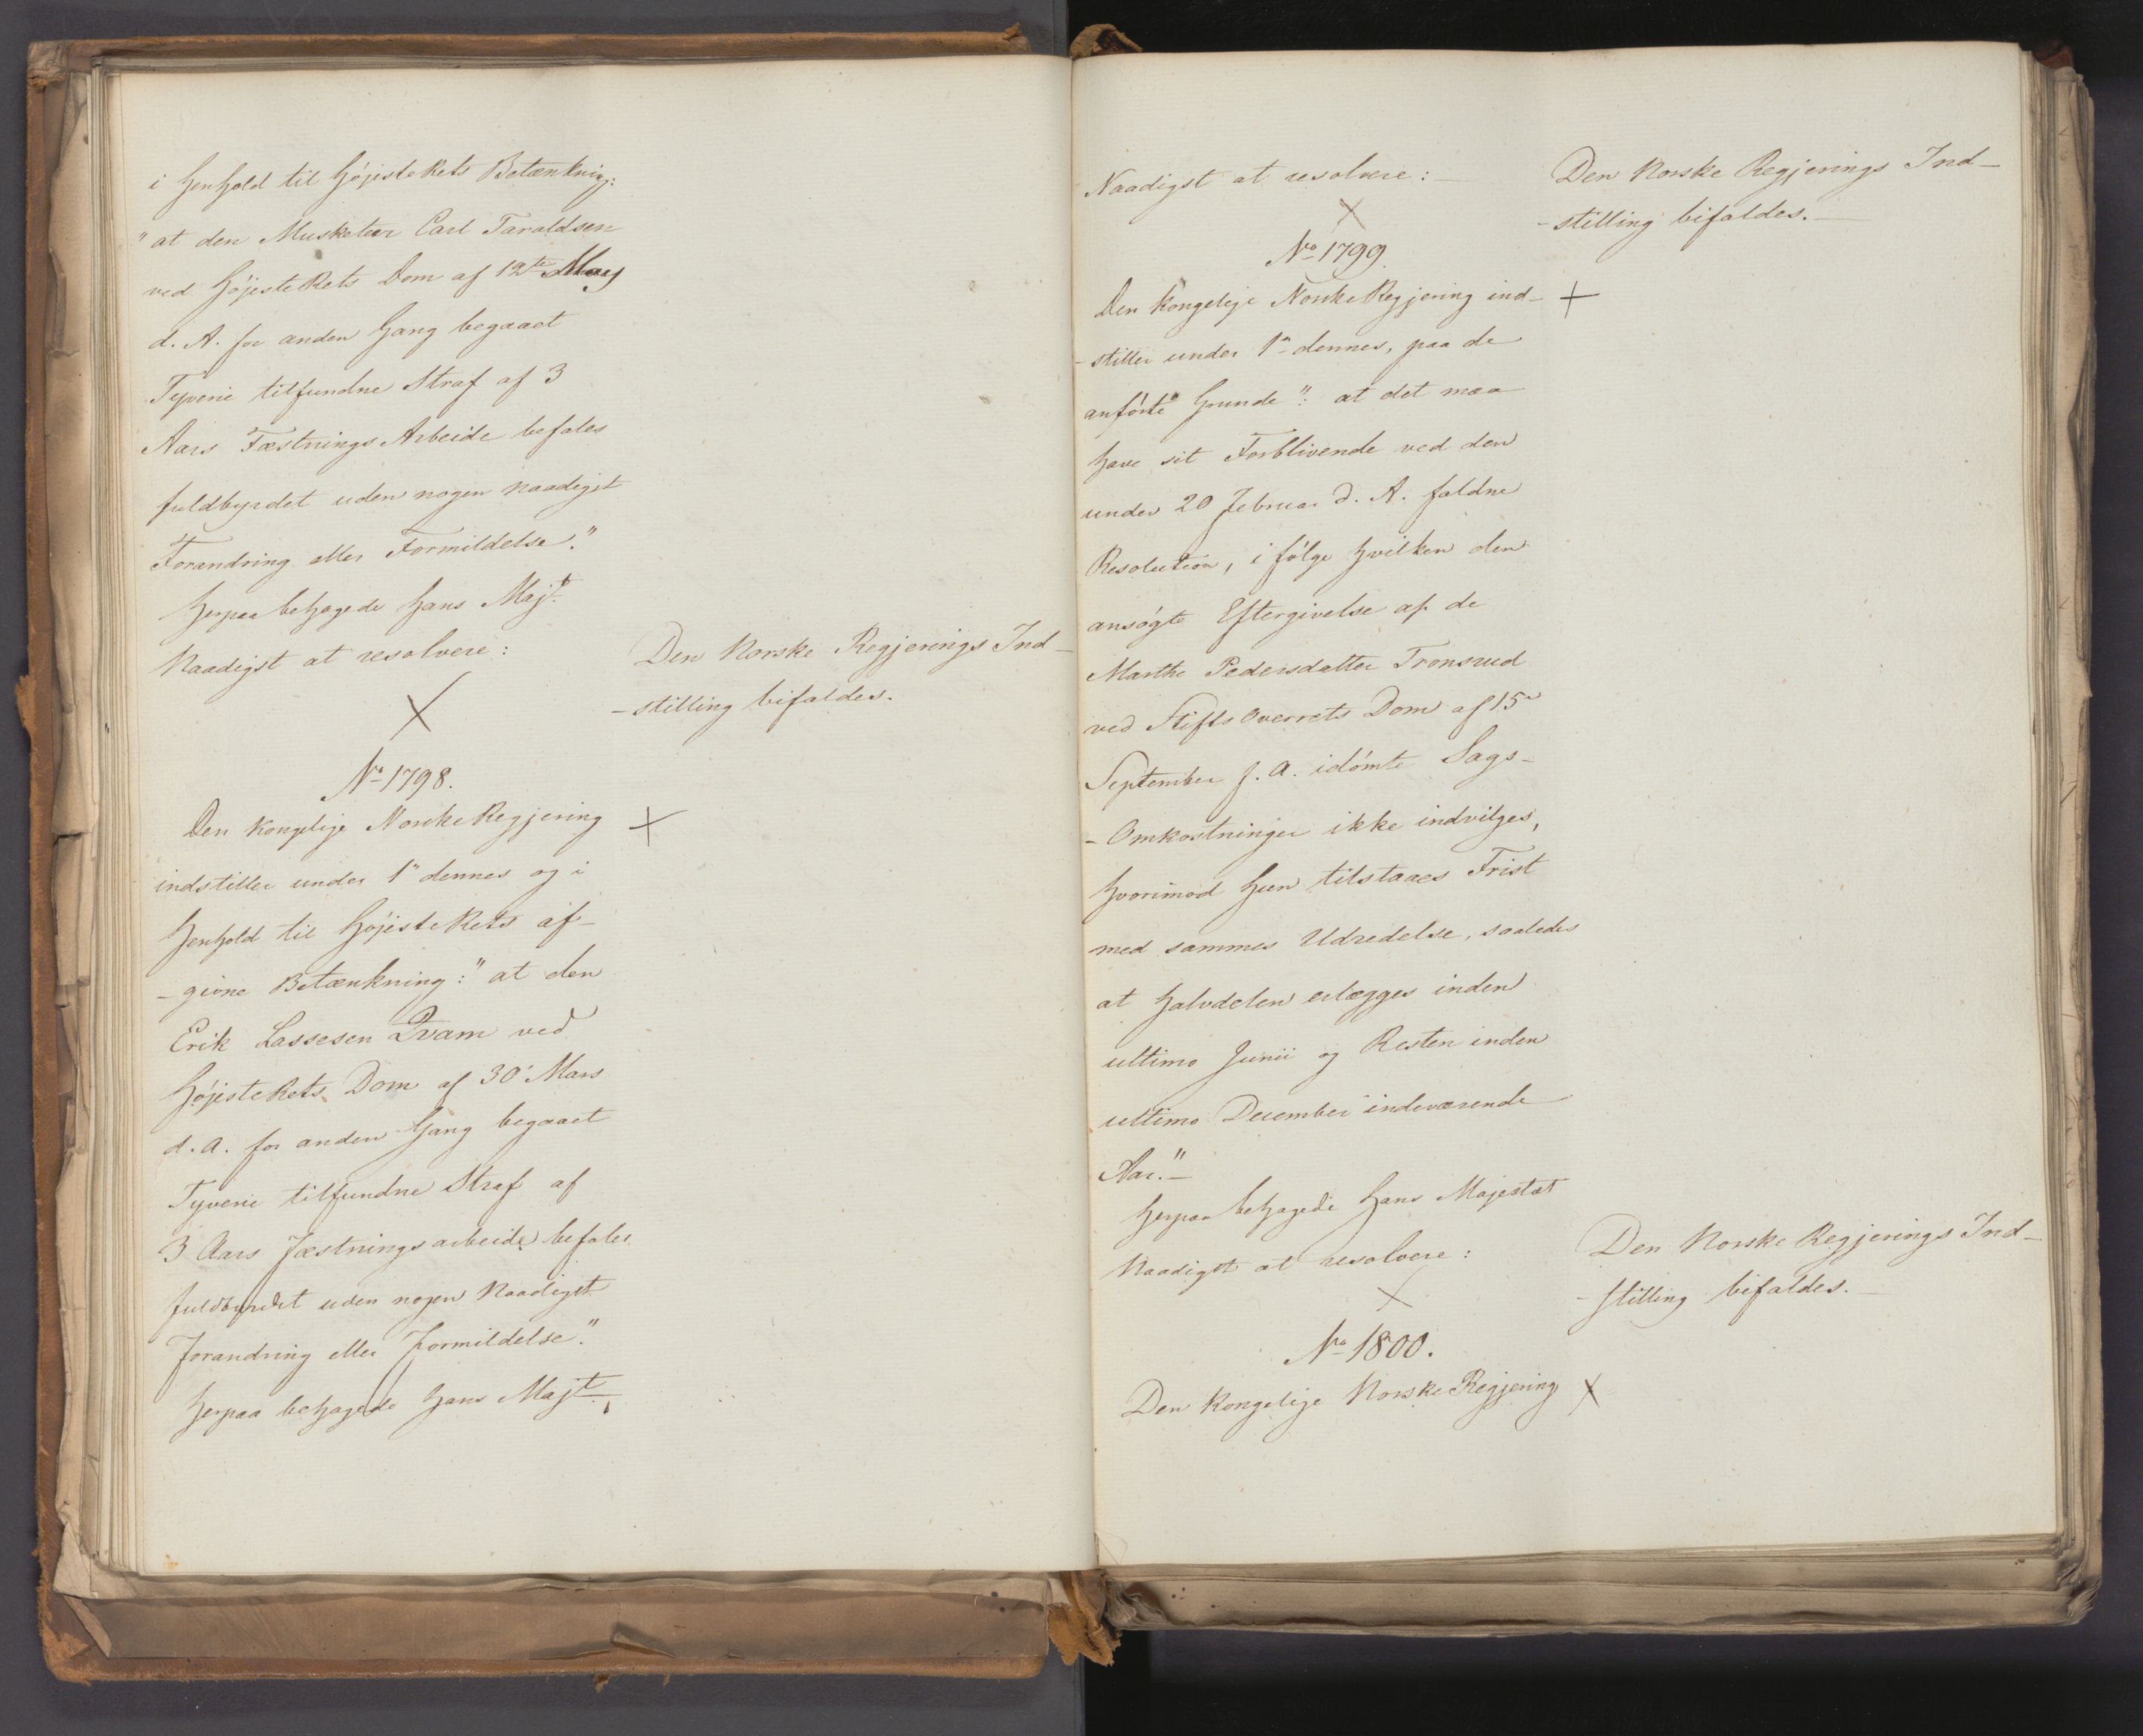 i Henhold til HöjesteRets Betænkning:
"at den Musketeer Carl Taraldsen
ved HöjesteRets Dom af 12te May
d. A. for anden Gang begaaet
Tyverie tilfundne Straf af 3
Aars Fæstnings Arbeide befales
fuldbyrdet uden nogen Naadigst
Forandring eller Formildelse."
Herpaa behagede Hans Majt
Naadigst at resolvere:
Den Norske Regjerings Ind-
-stilling bifaldes.
No 1798.
Den Kongelige Norske Regjering
indstiller under 1" dennes og i
Henhold til HöjesteRets af-
-givne Betænkning: "at den
Erik Lassesen Qvam ved
HöjesteRets Dom af 30' Mars
d. A. for anden Gang begaaet
Tyverie tilfundne Straf af
3 Aars Fæstningsarbeide befales
fuldbyrdet uden nogen Naadigst
Forandring eller Formildelse."
Herpaa behagede Hans Majt
Naadigst at resolvere:
Den Norske Regjerings Ind-
-stilling bifaldes.
No 1799.
Den Kongelige Norske Regjering ind-
-stiller under 1" dennes, paa de
anförte Grunde": at det maa
have sit Forblivende ved den
under 20 Februar d. A. faldne
Resolution, i fölge hvilken den
ansögte Eftergivelse af de
Marthe Pedersdatter Tronsrud
ved Stifts Overrets Dom af 15
September f. A. idömte Sags-
-Omkostninger ikke indvilges,
hvorimod hun tilstaaes Frist
med sammes Udredelse, saaledes
at Halvdelen erlægges inden
ultimo Junii og Resten inden
ultimo December indeværende
Aar."
Herpaa behagede Hans Majestæt
Naadigst at resolvere:
Den Norske Regjerings Ind-
-stilling bifaldes.
No 1800.
Den Kongelige Norske Regjering